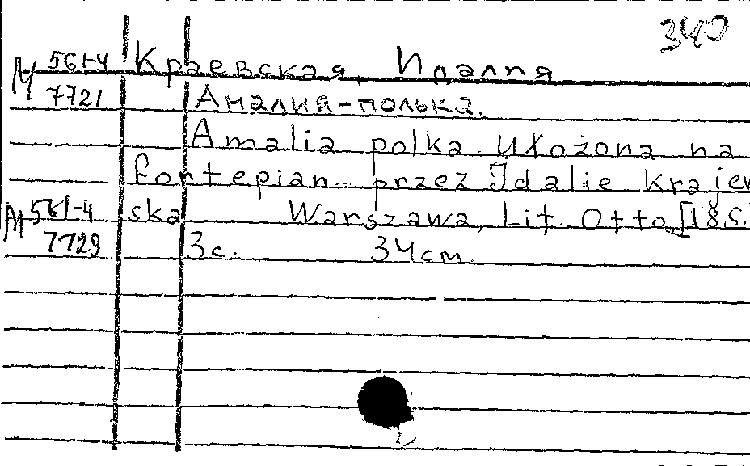 340
М 561-4 Краевская, Идалия
7721 Амалия-полька.
Amalia polka. Ułożona na
fortepian przez Idalie Krajew
М 561-4 ska Warszawa, Lit. Otto, [185.
7729 3с. 34см.